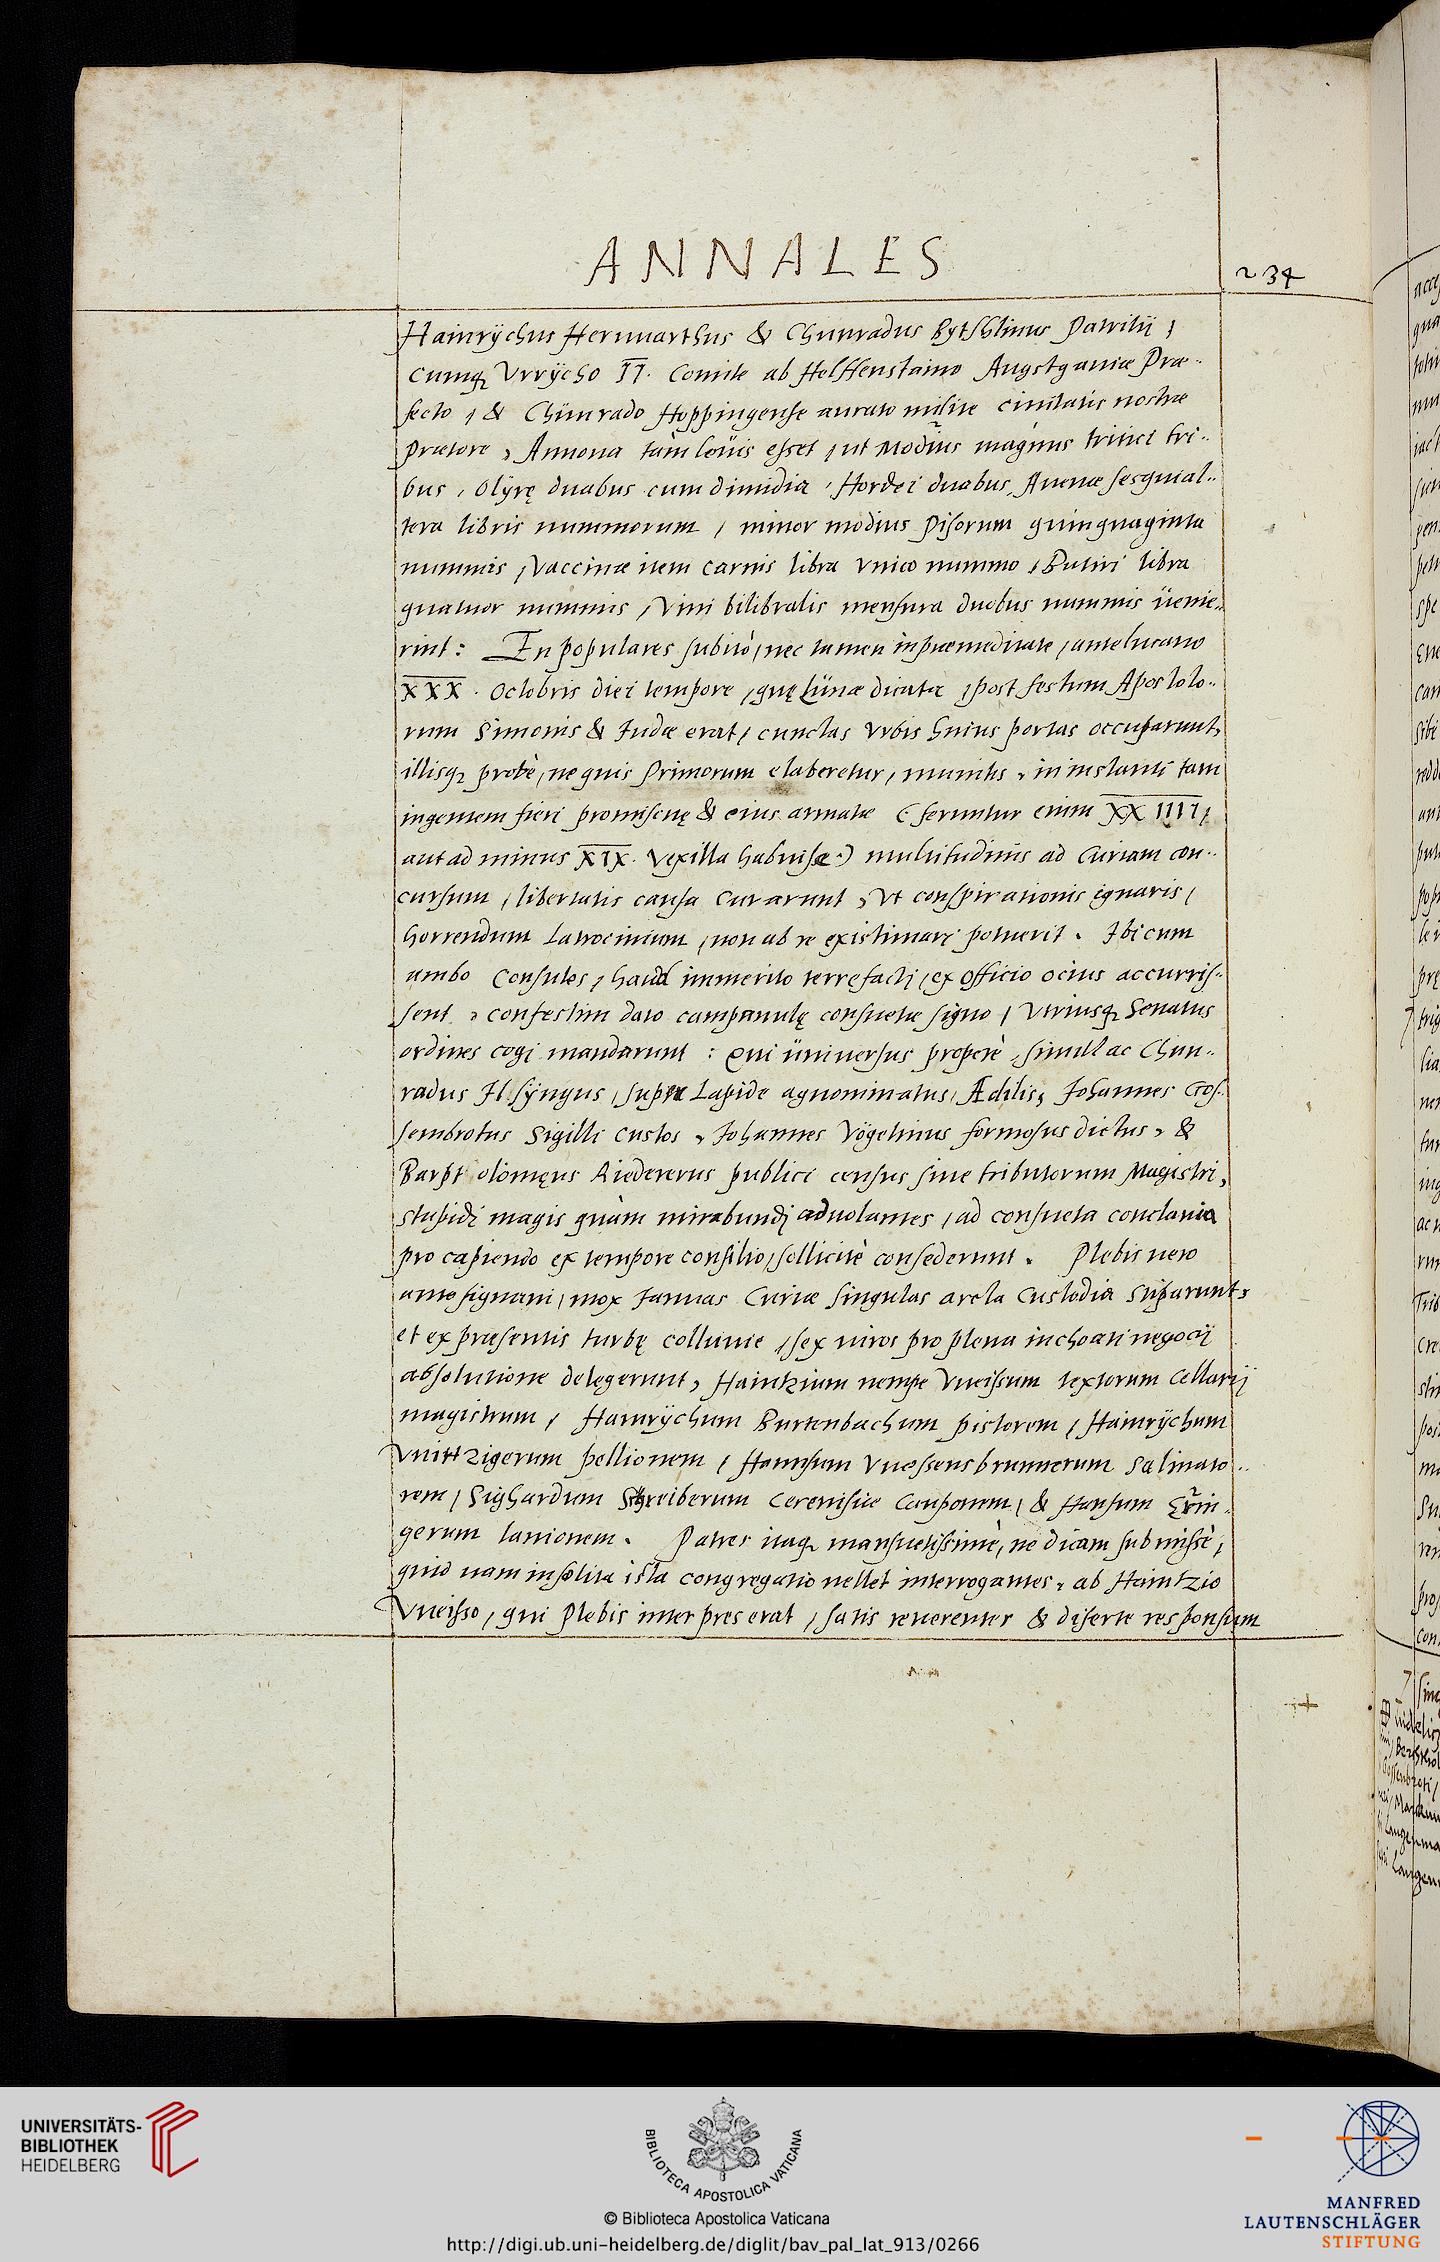 ANNALES
234
Hainrÿchus Heruuarthus & Chunradus Bytshlinus Patritij,
cumq₃ Vrrÿcho II. Comite ab Helffenstaino Augstganiæ Præ-
fecto, & Chünrado Hoppingense aurato milite ciuitatis nostræ
Prætore, Annona tàm leuis esset, ut Modius magnus tritici tri-
bus, Olÿrę duabus cum dimidia, Hordei duabus, Auenæ sesquial-
tera libris nummorum, minor modius Pisorum quinquaginta
nummis, Vaccinæ item carnis libra vnico nummo, Butiri libra
quatuor nummis, Vini bilibralis mensura duobus nummis uenie-
rint: En populares subitò, nec tamen inpræmeditate, antelucano
XXX. Octobris diei tempore, quę Lunæ dicata, post festum Apostolo-
rum Simonis & Judæ erat, cunctas vrbis huius portas occuparunt,
illisq₃ probè, ne quis Primorum elaberetur, munitis, in instanti tam
ingentem fieri promiscuę & eius armatæ (feruntur enim XXIIII,
aut ad minus XIX. Vexilla habuisse.) multitudinis ad Curiam con-
cursum, libertatis causa curarunt, Vt conspirationis ignaris,
horrendum Latrocinium, non ab re existimari potuerit. Ibi cum
ambo Consules, haud immerito terrefacti, ex officio ocius accurris-
sent, confestim dato campanulę consuetæ signo, Vtriusq₃ Senatus
ordines cogi mandarunt: Qui uniuersus properè, simul ac Chun-
radus Ilsÿngus, super Lapide agnominatus, Ædilis, Johannes Gos-
sembrotus Sigilli custos, Johannes Vögelinus formosus dictus, &
Barptolomęus Riedererus publici census siue tributorum Magistri,
stupidi magis quàm mirabundi aduolantes, ad consueta conclauia
pro capiendo ex tempore consilio, sollicitè consederunt. Plebis uero
antesignani, mox Januas Curiæ singulas arcta custodia stiparunt,
et ex præsentis turbę colluuie, sex uiros pro plena inchoati negocij
absolutione delegerunt, Haintzium nempe Vueissum textorum Cellarij
magistrum, Hainrÿchum Burtenbachum pistorem, Hainrÿchum
Vnittzigerum pellionem, Hannsum Vuessensbrunnerum Salinato-
rem, Sighardum Schreiberum cereuisiæ Cauponem, & Hansum Erin-
gerum lanionem. Patres itaq₃ mansuetissimè, ne dicam submissè,
quid nam insolita ista congregatio uellet interrogantes, ab Haintzio
Vueisso, qui Plebis interpres erat, satis reuerenter & diserte responsum
UNIVERSITÄTS-
BIBLIOTHEK
HEIDELBERG
BIBLIOTECA APOSTOLICA VATICANA
© Biblioteca Apostolica Vaticana
http://digi.ub.uni-heidelberg.de/diglit/bav_pal_lat_913/0266
MANFRED
LAUTENSCHLÄGER
STIFTUNG